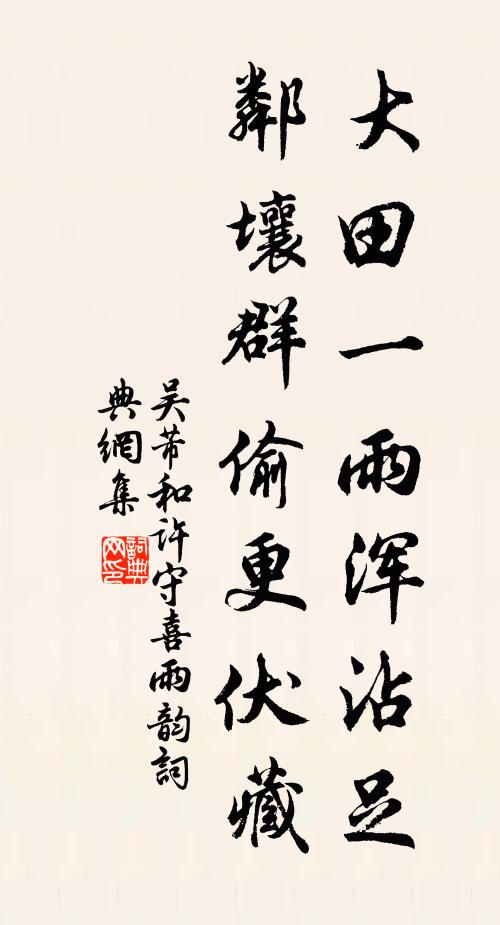 大田一雨浑沾足
鄰壤群偷更伏藏
吴芾和许守喜雨韵詞
典網集
詞典網印